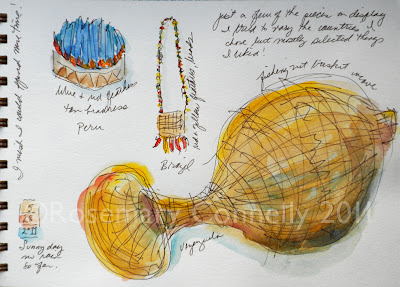 just a few of the pieces on display
I tried to vary the countries I
chose but mostly selected things
I liked!
I wish I could spend more time!
blue & red feather
headdress
Peru
red & yellow feathers, beads
Brazil
fishing net basket weave
Venezuela
Sunny day
so far.
©Rosemary Connelly 2011